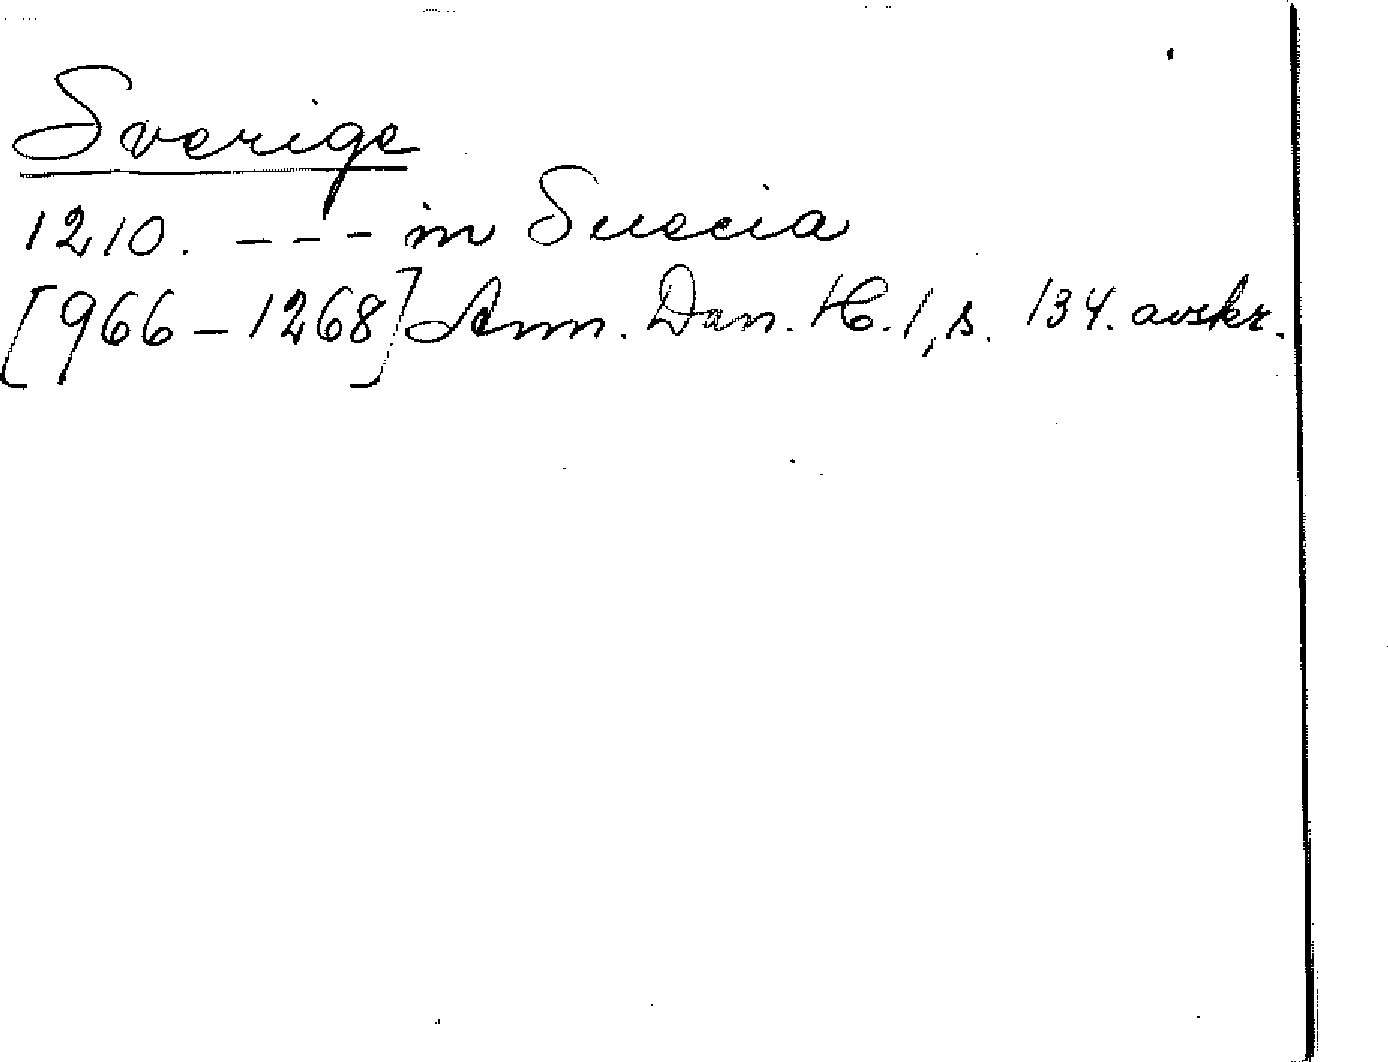 Sverige
1210. - - - in Suecia
[966 - 1268] Ann. Dan. H. 1, s. 134. avskr.